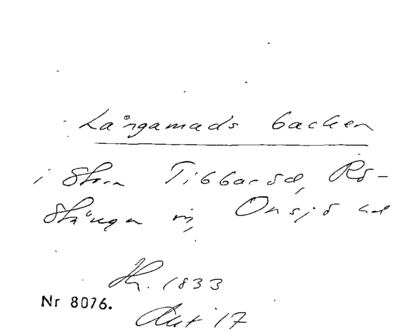 Långamads backen
i Stora Tibbarød, Rö-
stånga sn, Onsjö hd
Kr. 1833
Nr 8076.
Akt 17